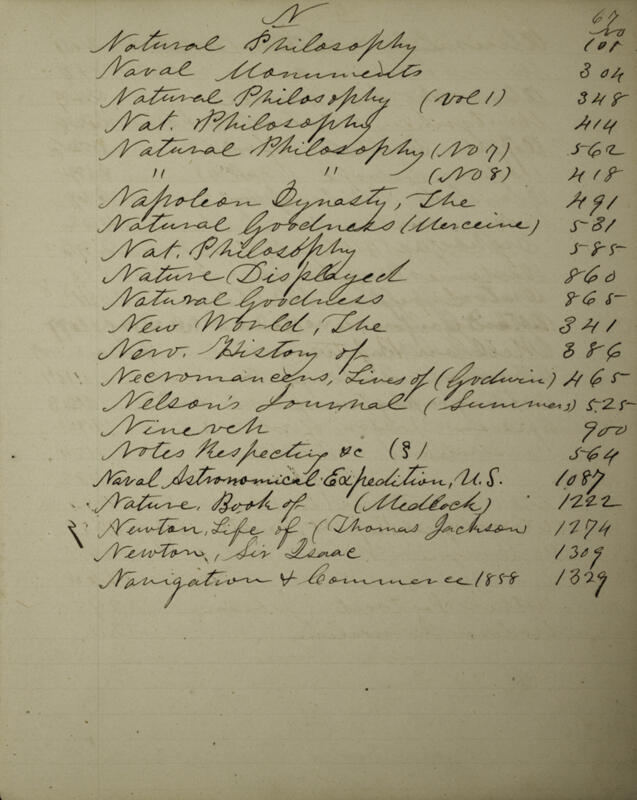 N 67
No
Natural Philosophy 101
Naval Monuments 304
Natural Philosophy (vol 1) 348
Nat. Philosophy 414
Natural Philosophy (No 7) 562
" " (No 8) 418
Napoleon Dynasty, The 491
Natural Goodness (Merceine) 531
Nat. Philosophy 585
Nature Displayed 860
Natural Goodness 865
New World, The 341
New. History of 386
Necromancers, Lives of (Godwin) 465
Nelson's Journal (Summers) 525
Nineveh 900
Notes Respecting &c (§) 564
Naval Astronomical Expedition, U.S. 1087
Nature, Book of (Medlock) 1222
Newton, Life of (Thomas Jackson 1274
Newton, Sir Isaac 1309
Navigation & Commerce 1858 1329